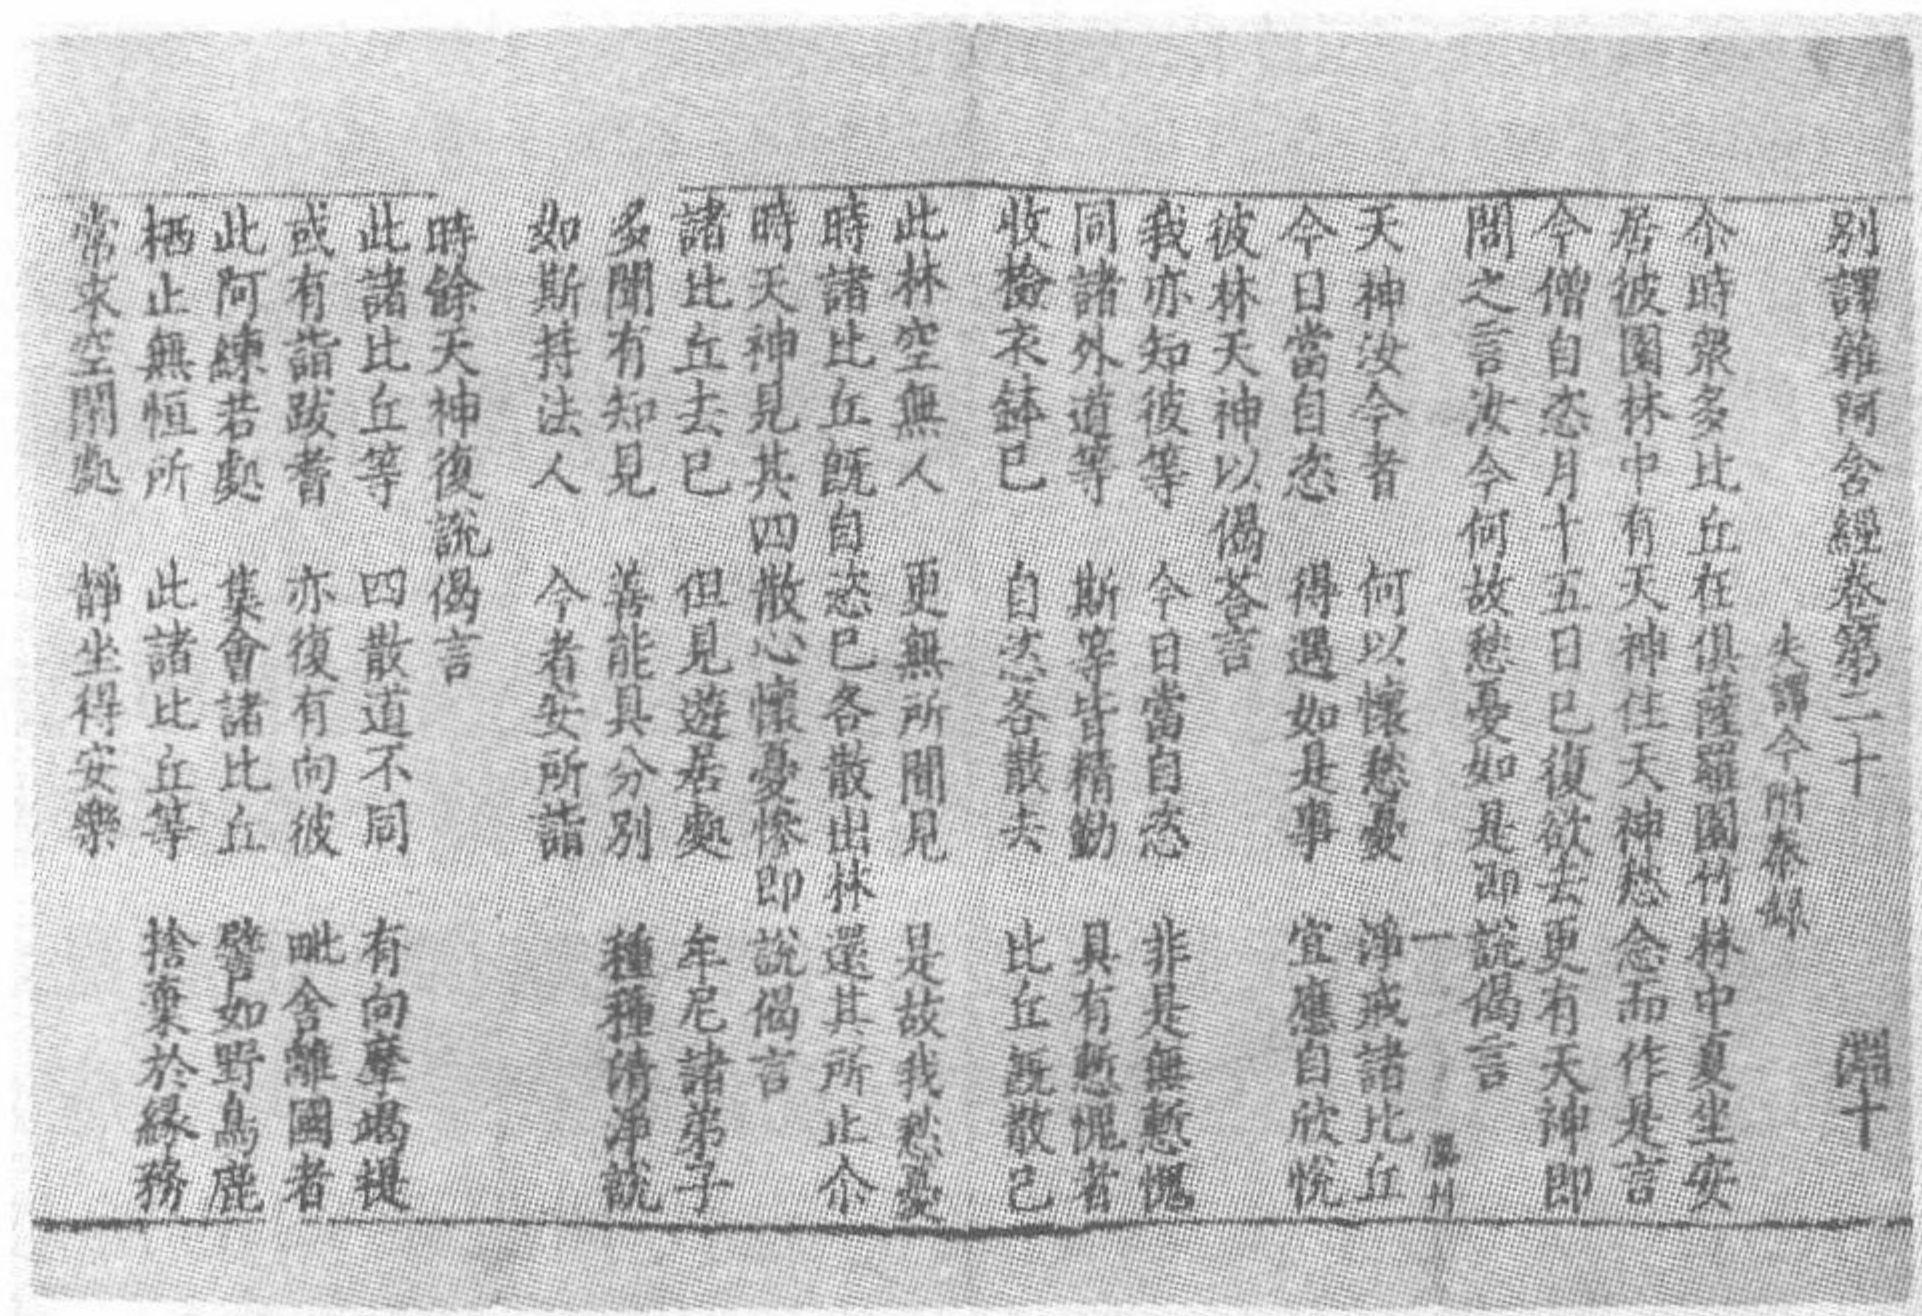 別譯雜阿含經卷第二十 淵十
失譯今附秦錄
尒時衆多比丘在俱薩羅國竹林中夏坐安
居彼園林中有天神住天神愁念而作是言
今僧自恣月十五日已復欲去更有天神即
問之言汝今何故愁憂如是即說偈言
一
天神汝今者 何以懷愁憂 淨戒諸比丘
今日當自恣 得遇如是事 宜應自欣悅
彼林天神以偈荅言
我亦知彼等 今日當自恣 非是無慙愧
同諸外道等 斯等皆精勤 具有慙愧者
收撿衣鉢已 自恣各散去 比丘既散已
此林空無人 更無所聞見 是故我愁憂
時諸比丘既自恣已各散出林還其所止尒
時天神見其四散心懷憂慘即說偈言
諸比丘去已 但見遊居處 牟尼諸弟子
多聞有知見 善能具分別 種種清淨說
如斯持法人 今者安所詣
時餘天神復說偈言
此諸比丘等 四散道不同 有向摩竭提
或有詣跋耆 亦復有向彼 毗舍離國者
此阿練若處 集會諸比丘 譬如野鳥鹿
栖止無恒所 此諸比丘等 捨棄於緣務
常求空閑處 靜坐得安樂